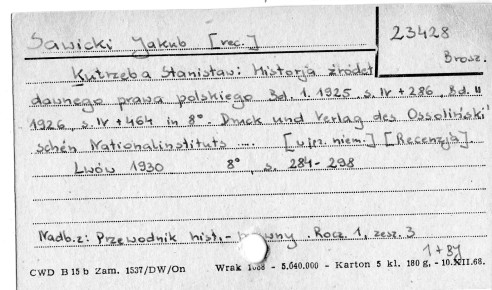 Sawicki Jakub [rec.]
23428
Brosz.
Kutrzeba Stanisław: Historja źródeł
dawnego prawa polskiego Bd. 1. 1925, s. IV + 286, Bd. II
1926, s. IV + 464 in 8° Druck und Verlag des Ossoliński
schen Nationalinstituts .... [w jęz. niem.] [Recenzja]
Lwów 1930 8°, s. 284-298
Nadb. z: Przewodnik hist.- Rocz. 1, zesz. 3
1+89
CWD B 15 b Zam. 1537/DW/On Wrak - 5.040.000 - Karton 5 kl. 180 g. - 10.XII.68.